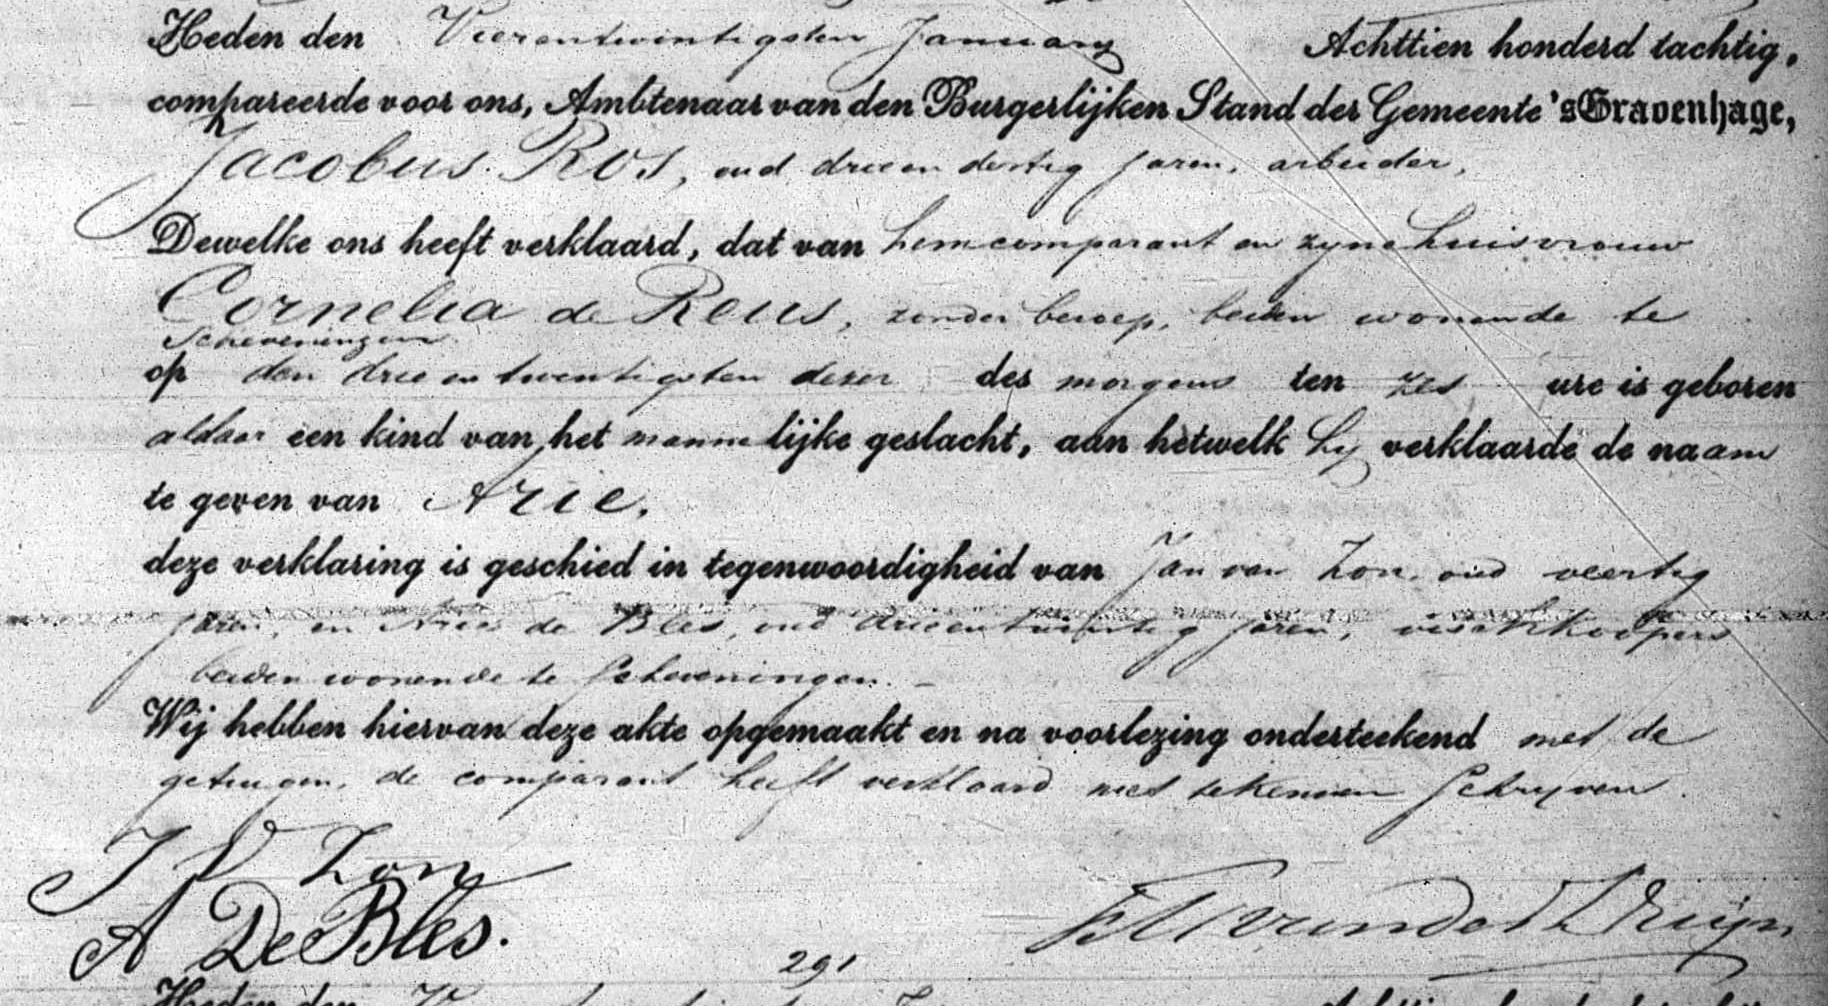 Heden den Vierentwintigsten January Achttien honderd tachtig,
compareerde voor ons, Ambtenaar van den Burgerlijken Stand der Gemeente 'sGravenhage,
Jacobus Ros, oud drieendertig jaren, arbeider,
Dewelke ons heeft verklaard, dat van hem comparant en zyne huisvrouw
Cornelia de Reus, zonder beroep, beiden wonende te
Scheveningen
op den drieentwentigsten dezer des morgens ten zes ure is geboren
aldaar een kind van het mannelijke geslacht, aan hetwelk hy verklaarde de naam
te geven van Arie.
deze verklaring is geschied in tegenwoordigheid van Jan van Zon, oud veertig
jaren, en Arie de Bles, oud drieentwintig jaren, vischkoopers
beiden wonende te Scheveningen. –
Wij hebben hiervan deze akte opgemaakt en na voorlezing onderteekend met de
getuigen, de comparant heeft verklaard niet te kennen schryven.
J V Zon
A De Bles.
291
Heden den